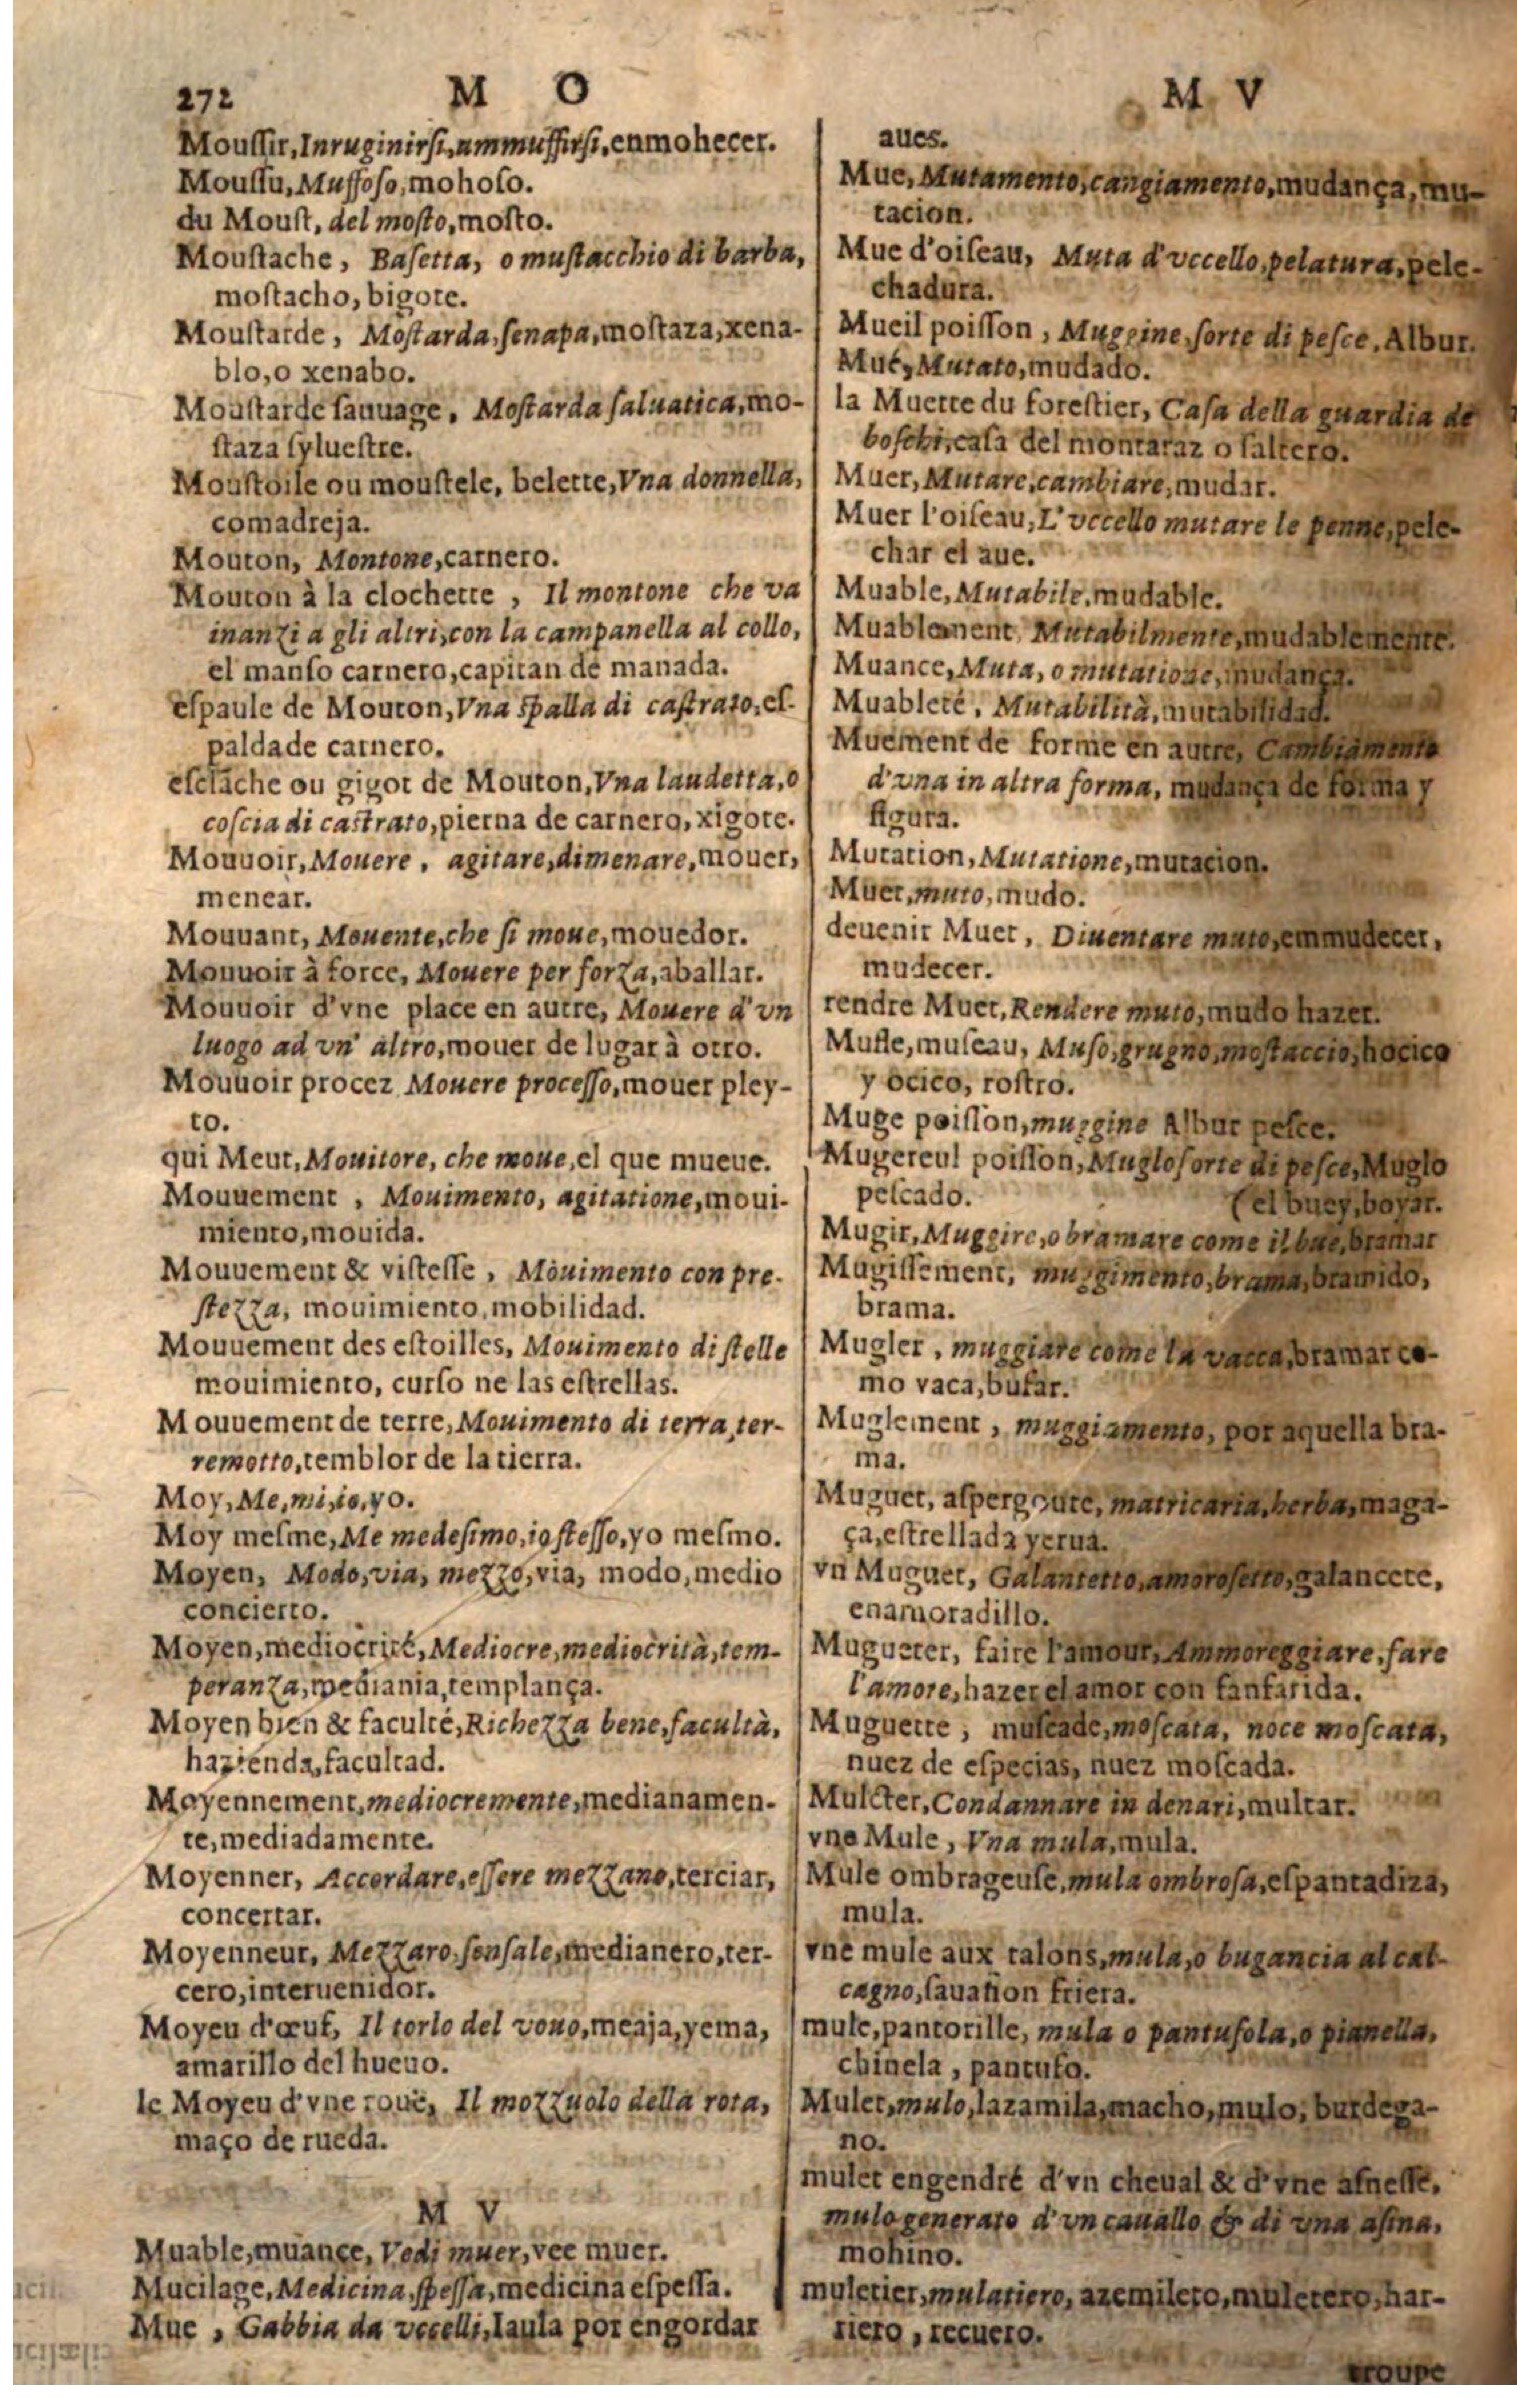 272 M O
Mouſſir, Inruginirſi, ammuffirſi, enmohecer.
Mouſſu, Muffoſo, mohoſo.
du Mouſt, del moſto, moſto.
Mouſtache, Baſetta, o muſtacchio di barba,
moſtacho, bigote.
Mouſtarde, Moſtarda, ſenapa, moſtaza, xena-
blo, o xenabo.
Mouſtarde ſauuage, Moſtarda ſaluatica, mo-
ſtaza ſylueſtre.
Mouſtoile ou mouſtele, belette, Vna donnella,
comadreja.
Mouton, Montone, carnero.
Mouton à la clochette, Il montone che va
inanzi a gli altri, con la campanella al collo,
el manſo carnero, capitan de manada.
eſpaule de Mouton, Vna ſpalla di caſtrato, eſ-
paldade carnero.
eſclãche ou gigot de Mouton, Vna laudetta, o
coſcia di caſtrato, pierna de carnero, xigote.
Mouuoir, Mouere, agitare, dimenare, mouer,
menear.
Mouuant, Mouente, che ſi moue, mouedor.
Mouuoir à force, Mouere per forza, aballar.
Mouuoir d'vne place en autre, Mouere d'vn
luogo ad vn' altro, mouer de lugar à otro.
Mouuoir procez, Mouere proceſſo, mouer pley-
to.
qui Meut, Mouitore, che moue, el que mueue.
Mouuement, Mouimento, agitatione, moui-
miento, mouida.
Mouuement & viſteſſe, Mouimento con pre-
ſtezza, mouimiento, mobilidad.
Mouuement des eſtoilles, Mouimento di ſtelle
mouimiento, curſo ne las eſtrellas.
Mouuement de terre, Mouimento di terra, ter-
remotto, temblor de la tierra.
Moy, Me, mi, io, yo.
Moy meſme, Me medeſimo, io ſteſſo, yo meſmo.
Moyen, Modo, via, mezzo, via, modo, medio
concierto.
Moyen, mediocrité, Mediocre, mediocrità, tem-
peranza, mediania, templança.
Moyen bien & faculté, Richezza bene, facultà,
hazienda, facultad.
Moyennement, mediocremente, medianamen-
te, mediadamente.
Moyenner, Accordare, eſſere mezzano, terciar,
concertar.
Moyenneur, Mezzaro, ſenſale, medianero, ter-
cero, interuenidor.
Moyeu d'œuf, Il torlo del vouo, meaja, yema,
amarillo del hueuo.
le Moyeu d'vne rouë, Il mozzuolo della rota,
maço de rueda.
M V
Muable, muance, Vedi muer, vee muer.
Mucilage, Medicina ſpeſſa, medicina eſpeſſa.
Mue, Gabbia da vccelli, Iaula por engordar
M V
aues.
Mue, Mutamento, cangiamento, mudança, mu-
tacion.
Mue d'oiſeau, Muta d'vccello, pelatura, pele-
chadura.
Mueil poiſſon, Muggine, ſorte di peſce, Albur.
Mué, Mutato, mudado.
la Muette du foreſtier, Caſa della guardia de
boſchi, caſa del montaraz o ſaltero.
Muer, Mutare, cambiare, mudar.
Muer l'oiſeau, L'vccello mutare le penne, pele-
char el aue.
Muable, Mutabile, mudable.
Muablement, Mutabilmente, mudablemente.
Muance, Muta, o mutatione, mudança.
Muableté, Mutabilità, mutabilidad.
Muement de forme en autre, Cambiamento
d'vna in altra forma, mudança de forma y
figura.
Mutation, Mutatione, mutacion.
Muet, muto, mudo.
deuenir Muet, Diuentare muto, emmudecer,
mudecer.
rendre Muet, Rendere muto, mudo hazer.
Mufle, muſeau, Muſo, grugno, moſtaccio, hocico
y ocico, roſtro.
Muge poiſſon, muggine Albur peſce.
Mugereul poiſſon, Muglo ſorte di peſce, Muglo
peſcado. (el buey, boyar.
Mugir, Muggire, o bramare come il bue, bramar
Mugiſſement, muggimento, brama, bramido,
brama.
Mugler, muggiare come la vacca, bramar co-
mo vaca, bufar.
Muglement, muggiamento, por aquella bra-
ma.
Muguet, aſpergoute, matricaria, herba, maga-
ça, eſtrellada yerua.
vn Muguet, Galantetto, amoroſetto, galancete,
enamoradillo.
Mugueter, faire l'amour, Ammoreggiare, fare
l'amore, hazer el amor con fanfarida.
Muguette, muſcade, moſcata, noce moſcata,
nuez de eſpecias, nuez moſcada.
Mulcter, Condannare in denari, multar.
vne Mule, Vna mula, mula.
Mule ombrageuſe, mula ombroſa, eſpantadiza,
mula.
vne mule aux talons, mula, o bugancia al cal-
cagno, ſauañon friera.
mule, pantoſille, mula o pantufola, o pianella,
chinela, pantufo.
Mulet, mulo, lazamila, macho, mulo, burdega-
no.
mulet engendré d'vn cheual & d'vne aſneſſe,
mulo generato d'vn cauallo & di vna aſina,
mohino.
muletier, mulatiero, azemilero, muletero, har-
riero, recuero.
troupe